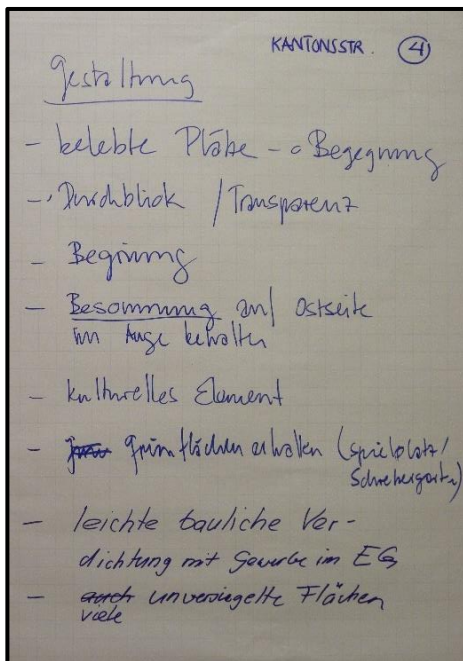 KANTONSSTR. 4
Gestaltung
- belebte Plätze → Begegnung
- Durchblick / Transparenz
- Begrünung
- Besonnung auf Ostseite
im Auge behalten
- kulturelles Element
- Grünflächen erhalten (Spielplatz/
Schrebergarten)
- leichte bauliche Ver-
dichtung mit Gewerbe im EG
- auch unversiegelte Flächen
viele